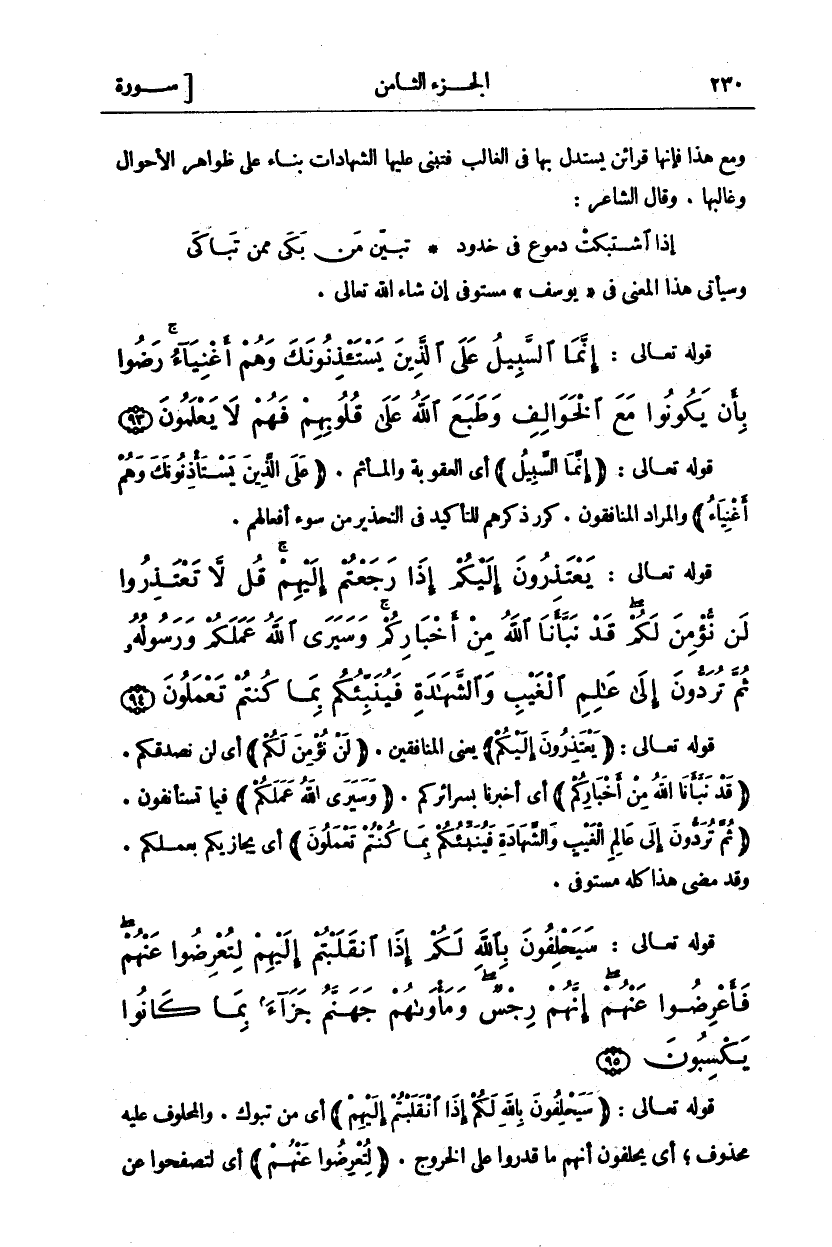 ٢٣٠ الجـزء الثـامن [ ســورة
ومع هذا فإنها قرائن يستدل بها فى الغالب فتبنى عليها الشهادات بناء على ظواهر الأحوال
وغالبها . وقال الشاعر :
إذا ٱشـتبكتْ دموع فى خدود * تبـيّن مَن بَكَى ممن تَبـاكَى
وسيأتى هذا المعنى فى « يوسف » مستوفى إن شاء الله تعالى .
قوله تعـالى : إِنَّمَا ٱلسَّبِيلُ عَلَى ٱلَّذِينَ يَسْتَـْٔذِنُونَكَ وَهُمْ أَغْنِيَآءُ ۚ رَضُوا
بِأَن يَكُونُوا مَعَ ٱلْخَوَالِفِ وَطَبَعَ ٱللَّهُ عَلَىٰ قُلُوبِهِمْ فَهُمْ لَا يَعْلَمُونَ ﴿٩٣﴾
قوله تعـالى : ﴿ إِنَّمَا السَّبِيلُ ﴾ أى العقوبة والمـأثم . ﴿ عَلَى الَّذِينَ يَسْـتَأْذِنُونَكَ وَهُمْ
أَغْنِيَاءُ ﴾ والمراد المنافقون . كرر ذكرهم للتأكيد فى التحذير من سوء أفعالهم .
قوله تعـالى : يَعْتَـذِرُونَ إِلَيْكُمْ إِذَا رَجَعْتُمْ إِلَيْهِمْ ۚ قُل لَّا تَعْتَـذِرُوا
لَن نُّؤْمِنَ لَكُمْ ۖ قَدْ نَبَّأَنَا ٱللَّهُ مِنْ أَخْبَارِكُمْ ۚ وَسَيَرَى ٱللَّهُ عَمَلَكُمْ وَرَسُولُهُۥ
ثُمَّ تُرَدُّونَ إِلَىٰ عَـٰلِمِ ٱلْغَيْبِ وَٱلشَّهَـٰدَةِ فَيُنَبِّئُكُم بِمَـا كُنتُمْ تَعْمَلُونَ ﴿٩٤﴾
قوله تعالى : ﴿ يَعْتَذِرُونَ إِلَيْكُمْ ﴾ يعنى المنافقين . ﴿ لَنْ نُؤْمِنَ لَكُمْ ﴾ أى لن نصدقكم .
﴿ قَدْ نَبَّأَنَا اللَّهُ مِنْ أَخْبَارِكُمْ ﴾ أى أخبرنا بسرائركم . ﴿ وَسَيَرَى اللَّهُ عَمَلَكُمْ ﴾ فيما تستأنفون .
﴿ ثُمَّ تُرَدُّونَ إِلَى عَالِمِ الْغَيْبِ وَالشَّهَادَةِ فَيُنَبِّئُكُمْ بِمَـا كُنْتُمْ تَعْمَلُونَ ﴾ أى يجازيكم بعمـلكم .
وقد مضى هذا كله مستوفى .
قوله تعـالى : سَيَحْلِفُونَ بِٱللَّهِ لَكُمْ إِذَا ٱنقَلَبْتُمْ إِلَيْهِمْ لِتُعْرِضُوا عَنْهُمْ ۖ
فَأَعْرِضُـوا عَنْهُـمْ ۖ إِنَّهُمْ رِجْسٌ ۖ وَمَأْوَىٰهُمْ جَهَنَّمُ جَزَآءَۢ بِمَـا كَانُوا
يَكْسِبُونَ ﴿٩٥﴾
قوله تعالى : ﴿ سَيَحْلِفُونَ بِاللَّهِ لَكُمْ إِذَا انْقَلَبْتُمْ إِلَيْهِمْ ﴾ أى من تبوك . والمحلوف عليه
محذوف ؛ أى يحلفون أنهم ما قدروا على الخروج . ﴿ لِتُعْرِضُوا عَنْهُـمْ ﴾ أى لتصفحوا عن